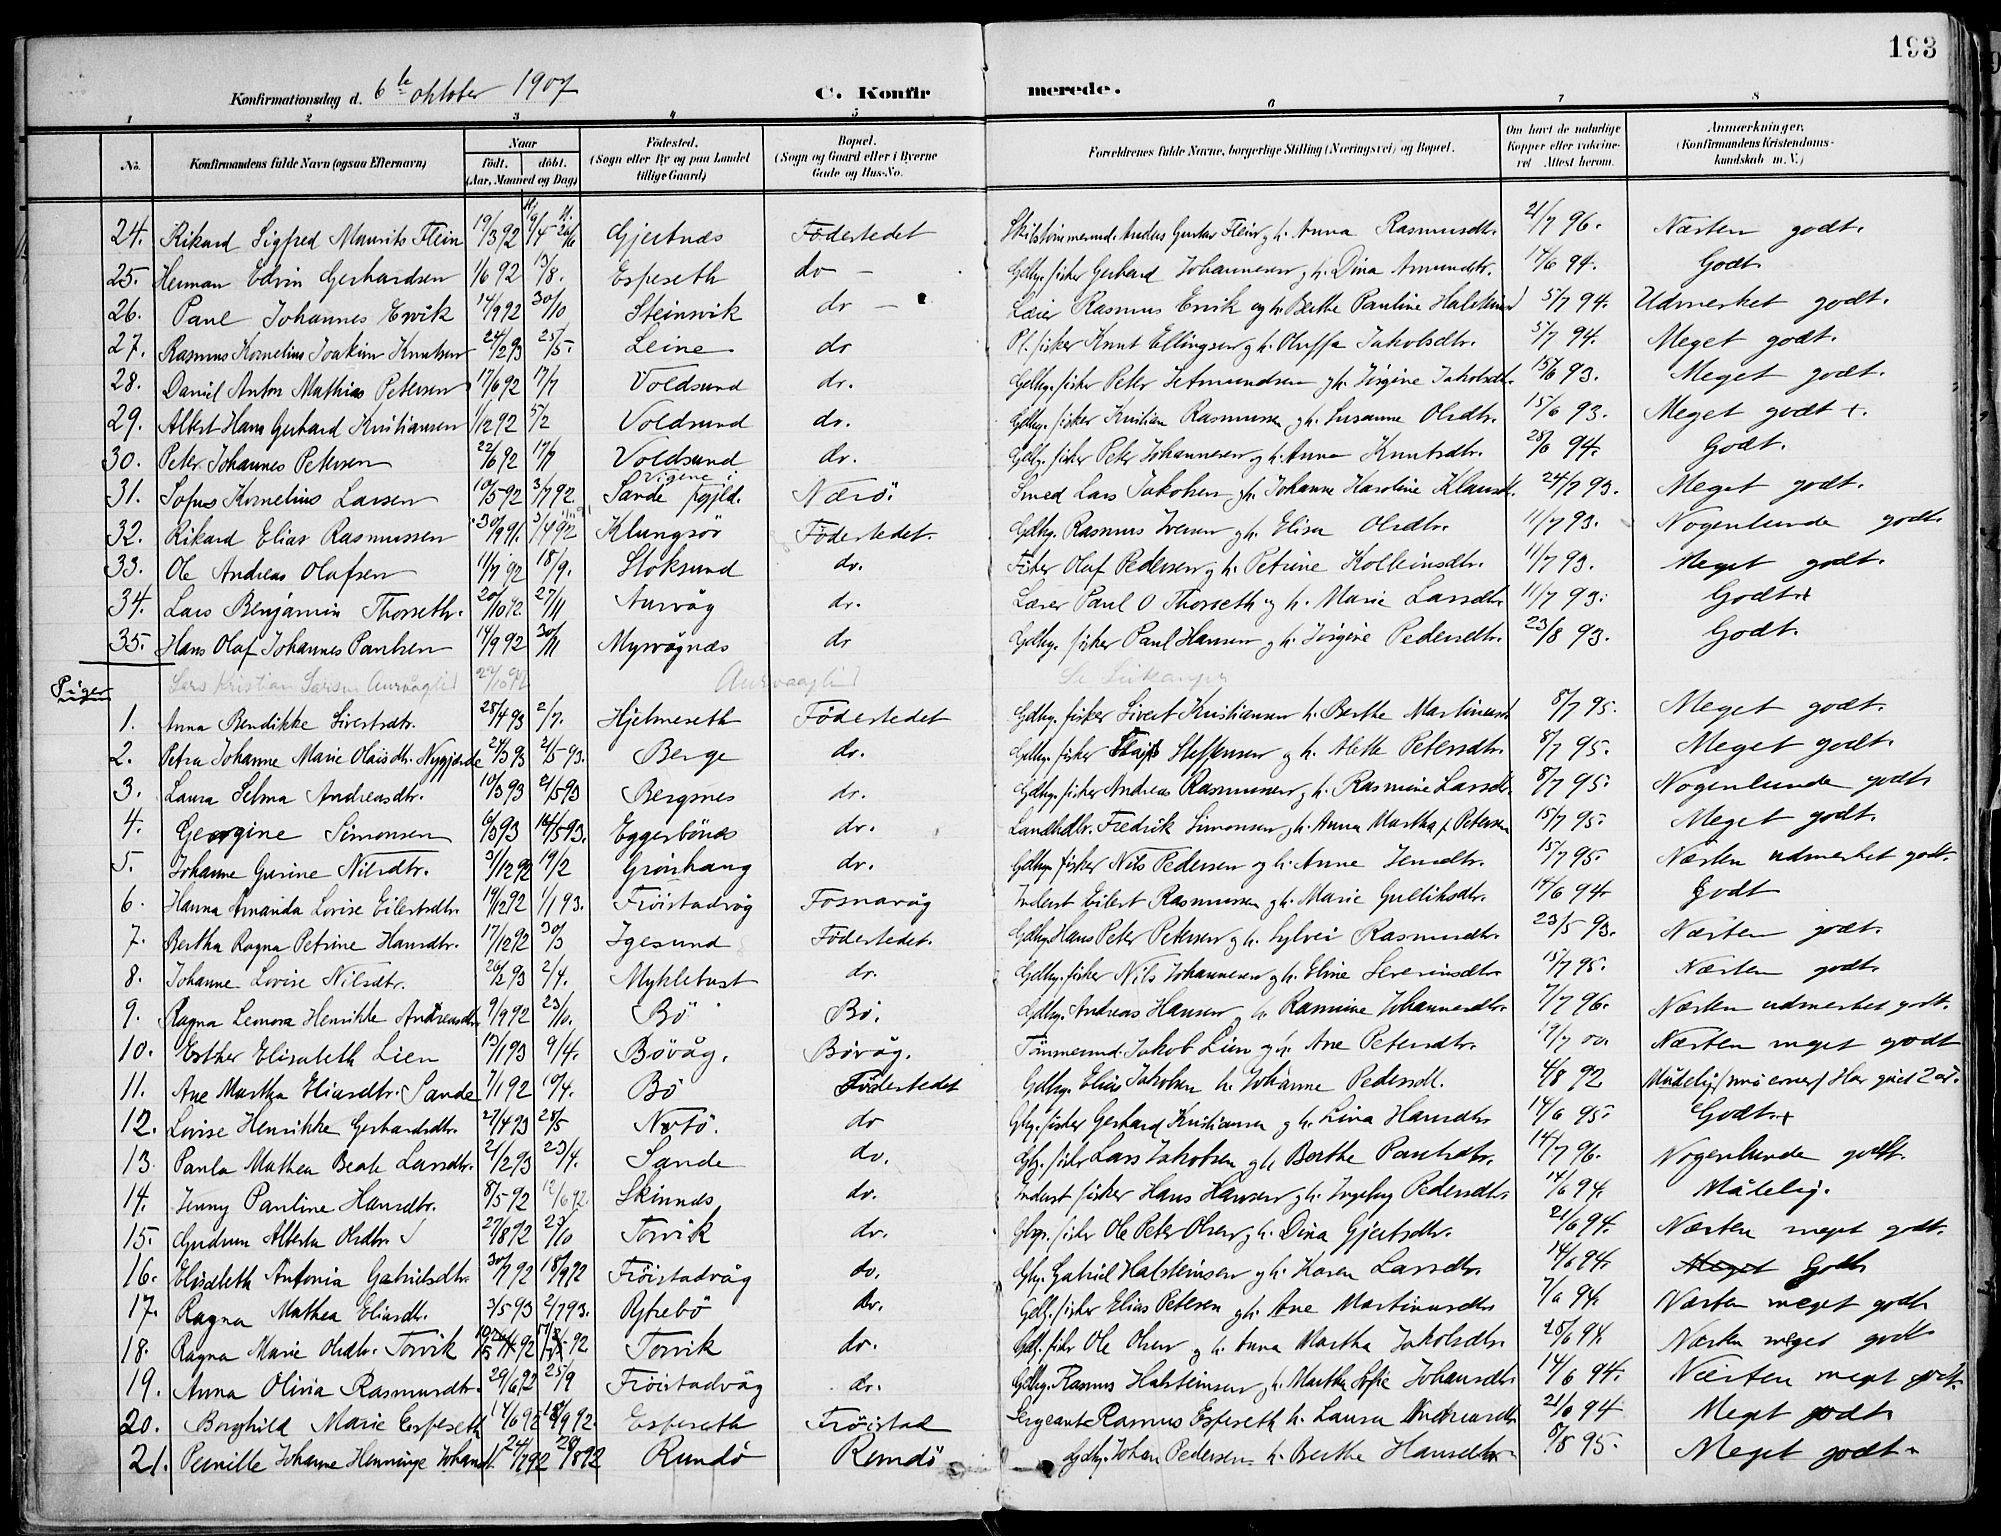 193
Konfirmationsdag d. 6te oktober 1907 C. Konfirmerede.
1 2 3 4 5 6 7 8
No. Konfirmandens fulde Navn (ogsaa Efternavn) Naar født. døbt. (Aar, Maaned og Dag) Fødested. (Sogn eller By og paa Landet tillige Gaard) Bopæl. (Sogn og Gaard eller i Byerne Gade og Hus-No. Forældrenes fulde Navne, borgerlige Stilling (Næringsvei) og Bopæl. Om havt de naturlige Kopper eller vaccineret Attest herom. Anmærkninger. (Konfirmandens Kristendomskundskab m. V.)
24. Rikard Sigfred Maurits Flein 19/3 92 Gjertnes Födestedet Anders Gustav Flein g h. Anna Rasmusdtr. 21/7 96. Næsten godt.
25. Herman Edvin Gerhardsen 1/6 92 13/8. Espeseth do - Gdbg. fisker Gerhard Johannesen g h. Dina Amundsdtr. 14/6 94. Godt
26. Paul Johannes Ervik 14/9 92 30/10 Steinsvik do - Rasmus Ervik og h. Berthe Pauline 5/7 94. Udmerket godt.
27. Rasmus Kornelius Joakim Knutsen 24/2 93 25/5. Leine do Pl. fisker Knut Ellingsen g h. Oluffa Jakobsdtr. 5/7 94. Meget godt.
28. Daniel Anton Mathias Petersen 17/6 92 17/7 Voldsund do. Gdbg. fisker Peter g h. Jörgine Jakobsdtr. 15/6 93. Meget godt.
29. Albert Hans Gerhard Kristiansen 1/12 92 5/2 Voldsund do. Gdbg. fisker Kristian Rasmussen g h. Susanne Olsdtr. 15/6 93. Meget godt +.
30. Peter Johannes Petersen 22/6 92 17/7 Voldsund do. Gdbg. fisker Peter Johannesen g h. Anna Knutsdtr. 28/6 94. Godt.
31. Sofus Kornelius Larsen 10/5 92 3/7 92 Sande pgjld. Nærö. Smed Lars Jakobsen g h. Johanne Karoline 24/7 93. Meget godt.
32. Rikard Elias Rasmussen 30/9 91. 3/4 92 Klungsör Födestedet. Gdbg. Rasmus Iversen g h. Elisa Olsdtr. 11/7 93. Nogenlunde godt
33. Ole Andreas Olafsen 11/7 92 18/9. Stoksund do. Fisker Olaf Pedersen g h. Petrine Kolbeinsdtr. 11/7 93. Meget godt.
34. Lars Benjamin Thorseth. 20/10 92. 27/11 Aurvåg do. Lærer Paul O Thorseth og h. Marie Larsdtr. 11/7 93. Godt +
35. Hans Olaf Johannes Paulsen 14/9 92 30/11 Myrvågnes do Gdbg. fisker Paul Hansen g h. Jörgine Pedersdtr. 23/8 93. Godt.
Piger
Lars Kristian Larsen Aurvåglid 22/10 92 Aurvaaglid
1. Anna Bendikke Sivertsdtr. 28/4 93 2/7. Hjelmeseth Födestedet Gdbg. fisker Sivert Kristiansen h. Berthe Martinusd. 8/7 95. Meget godt.
2. Petra Johanne Marie Olaisdtr. Nygjerde 24/3 93 21/5 93. Berge do. Gdbg. fisker Steffensen g h. Alette Petersdtr. 8/7 95. Meget godt.
3. Laura Selma Andreasdtr. 10/3 93 21/5 93 Bergsnes do. Gdbg. fisker Andreas Rasmussen g h. Rasmine Larsdtr. 8/7 95. Nogenlunde godt
4. Georgine Simonsen 6/3 93 14/5 93. Eggesbönes do. Landhdlr. Fredrik Simonsen g h. Anna Martha f. Petersen 15/7 95. Meget godt.
5. Johanne Gurine Nilsdtr. 3/12 92 19/2 Grönhaug do. Gdbg. fisker Nils Pedersen og h. Anne Jensdtr. 15/7 95. Næsten udmerket godt.
6. Hanna Amanda Lovise Eilertsdtr. 19/12 92 1/1 93. Fröistadvåg Fosnavåg Inderst Eilert Rasmussen g h. Marie Gulliksdtr. 14/6 94 Godt
7. Bertha Ragna Petrine Hansdtr. 17/12 92 30/3 Igesund Födestedet. Gdbg. Hans Peter Petersen g h. Sylvei Rasmusdtr. 23/5 93. Næsten godt.
8. Johanne Lovise Nilsdtr. 26/2 93 2/4. Myklebust do. Gdbg. fisker Nils Johannesen g h. Eline Severinsdtr. 15/7 95. Næsten godt
9. Ragna Lenora Henrikke Andreasdtr. 9/9 92 23/10. Bö Bö. Gdbg. Andreas Hansen g h. Rasmine Johannesdtr. 7/7 96. Næsten udmerket godt.
10. Esther Elisabeth Lien 13/1 93 9/4. Bövåg. Bövåg. Tömmermd. Jakob Lien g h. Ane Petersdtr. 19/7 00. Næsten meget godt
11. Ane Martha Eliasdtr. Sande 7/1 92 10/4. Bö Födestedet Gdbg. Elias Jakobsen h. Johanne Pedersd. 4/8 92 Mådelig
12. Lovise Henrikke Gerhardsdtr. 27/4 93 28/5 do Gbg. fisker Gerhard Kristiansen g h. Lina Hansdtr. 14/6 95. Godt. +
13. Paula Mathea Beate Larsdtr. 21/2 93 23/4. Sande do. Gbg. fisker Lars Jakobsen g h. Berthe Paulsdtr. 14/7 96. Nogenlunde godt.
14. Jenny Pauline Hansdtr. 8/5 92 12/6 92. Skinnes do. Inderst fisker Hans Hansen g h. Ingeborg Pedersdtr. 14/6 94. Mådelig.
15. Gudrun Alberta Olsdtr. 27/8 92 23/10 Torvik do. Gbg. fisker Ole Peter Olsen g h. Dina Gjertsdtr. 21/6 94. Næsten meget godt.
16. Elisabeth Antonia Gabrielsdtr. 30/7 92 18/9 92 Fröistadvåg do. Gbg. Gabriel Halsteinsen g h. Karen Larsdtr. 14/6 94. Meget Godt
17. Ragna Mathea Eliasdtr. 3/5 93 2/7 93. do. Gdbg. fisker Elias Petersen g h. Ane Martinusdtr. 7/6 94. Næsten meget godt
18. Ragna Marie Olsdtr. Torvik 92 Torvik do. Gdb. fisker Ole Olsen g h. Anna Martha Jakobsdtr. 28/6 94. Næsten meget godt
19. Anna Olivia Rasmusdtr. 29/6 92 25/9 Fröistadvåg do. Gdbg. Rasmus Halsteinsen g h. Martha Sofie Johansdtr. 14/6 94. Næsten meget godt.
20. Borghild Marie Espeseth 14/6 92 18/9 92. Espeseth Fröistad Sergeant Rasmus Espeseth h. Laura Andreasdtr 21/6 94 Meget godt
21. Pernille Johanne Henninge Johansd. 24/7 92 28/8 92 Rundö Rundö Gdbg. Johan Pedersen h. Berthe Hansdtr 8/8 95. Meget godt.